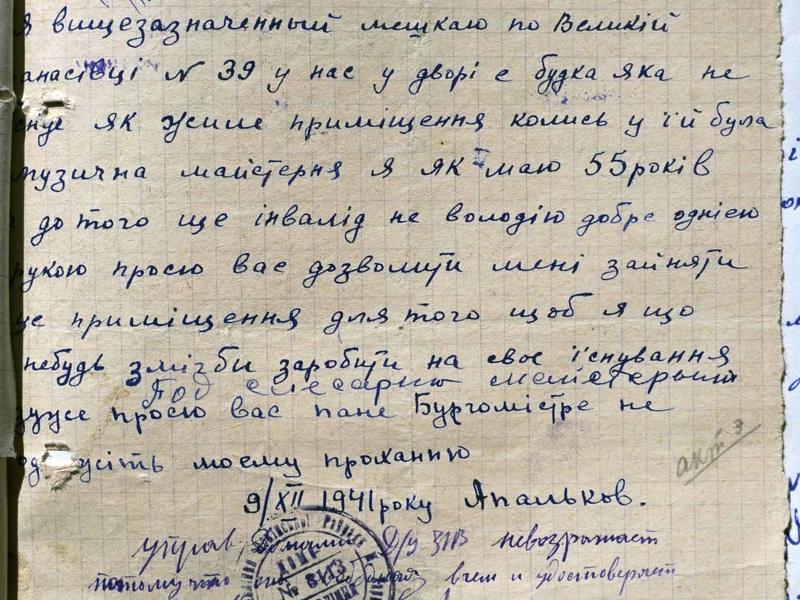 Я вищезазначенный мешкаю по Великій
анасівці № 39 у нас у дворі є будка яка не
снує як жиле приміщення колись у їй була
музична майстерня я як маю 55 років
до того ще інвалід не володію добре однією
рукою просю вас дозволити мені зайняти
це приміщення для того щоб я що
небудь зміг би заробити на своє існування
Под слесарню мастерьскую
дуже просю вас пане Бургомістре не
од усіть моему проханню
9/XII 1941 року Апальков.
акт 3
управ Д/У 31/13 невозражает
потому что вчем и удостоверяет
№ 31/13